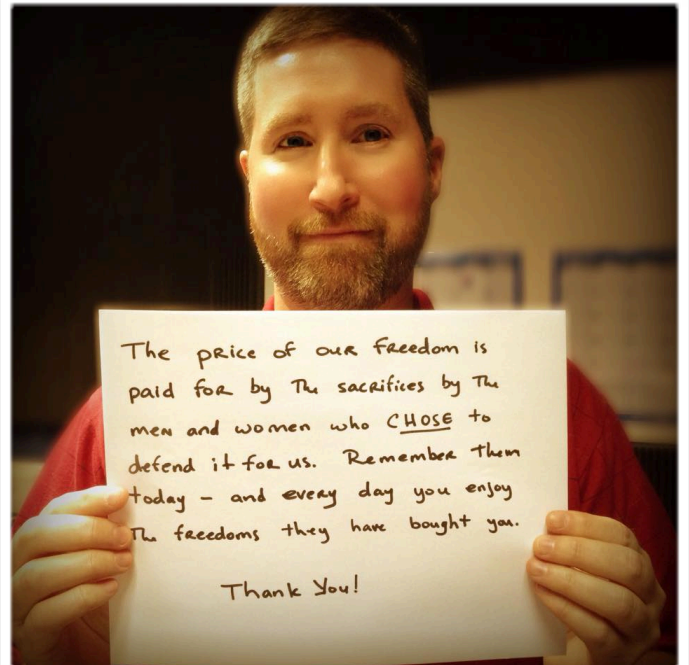 The price of our freedom is
paid for by The sacrifices by The
men and women who CHOSE to
defend it for us. Remember them
today - and every day you enjoy
The freedoms they have bought you.
Thank You!